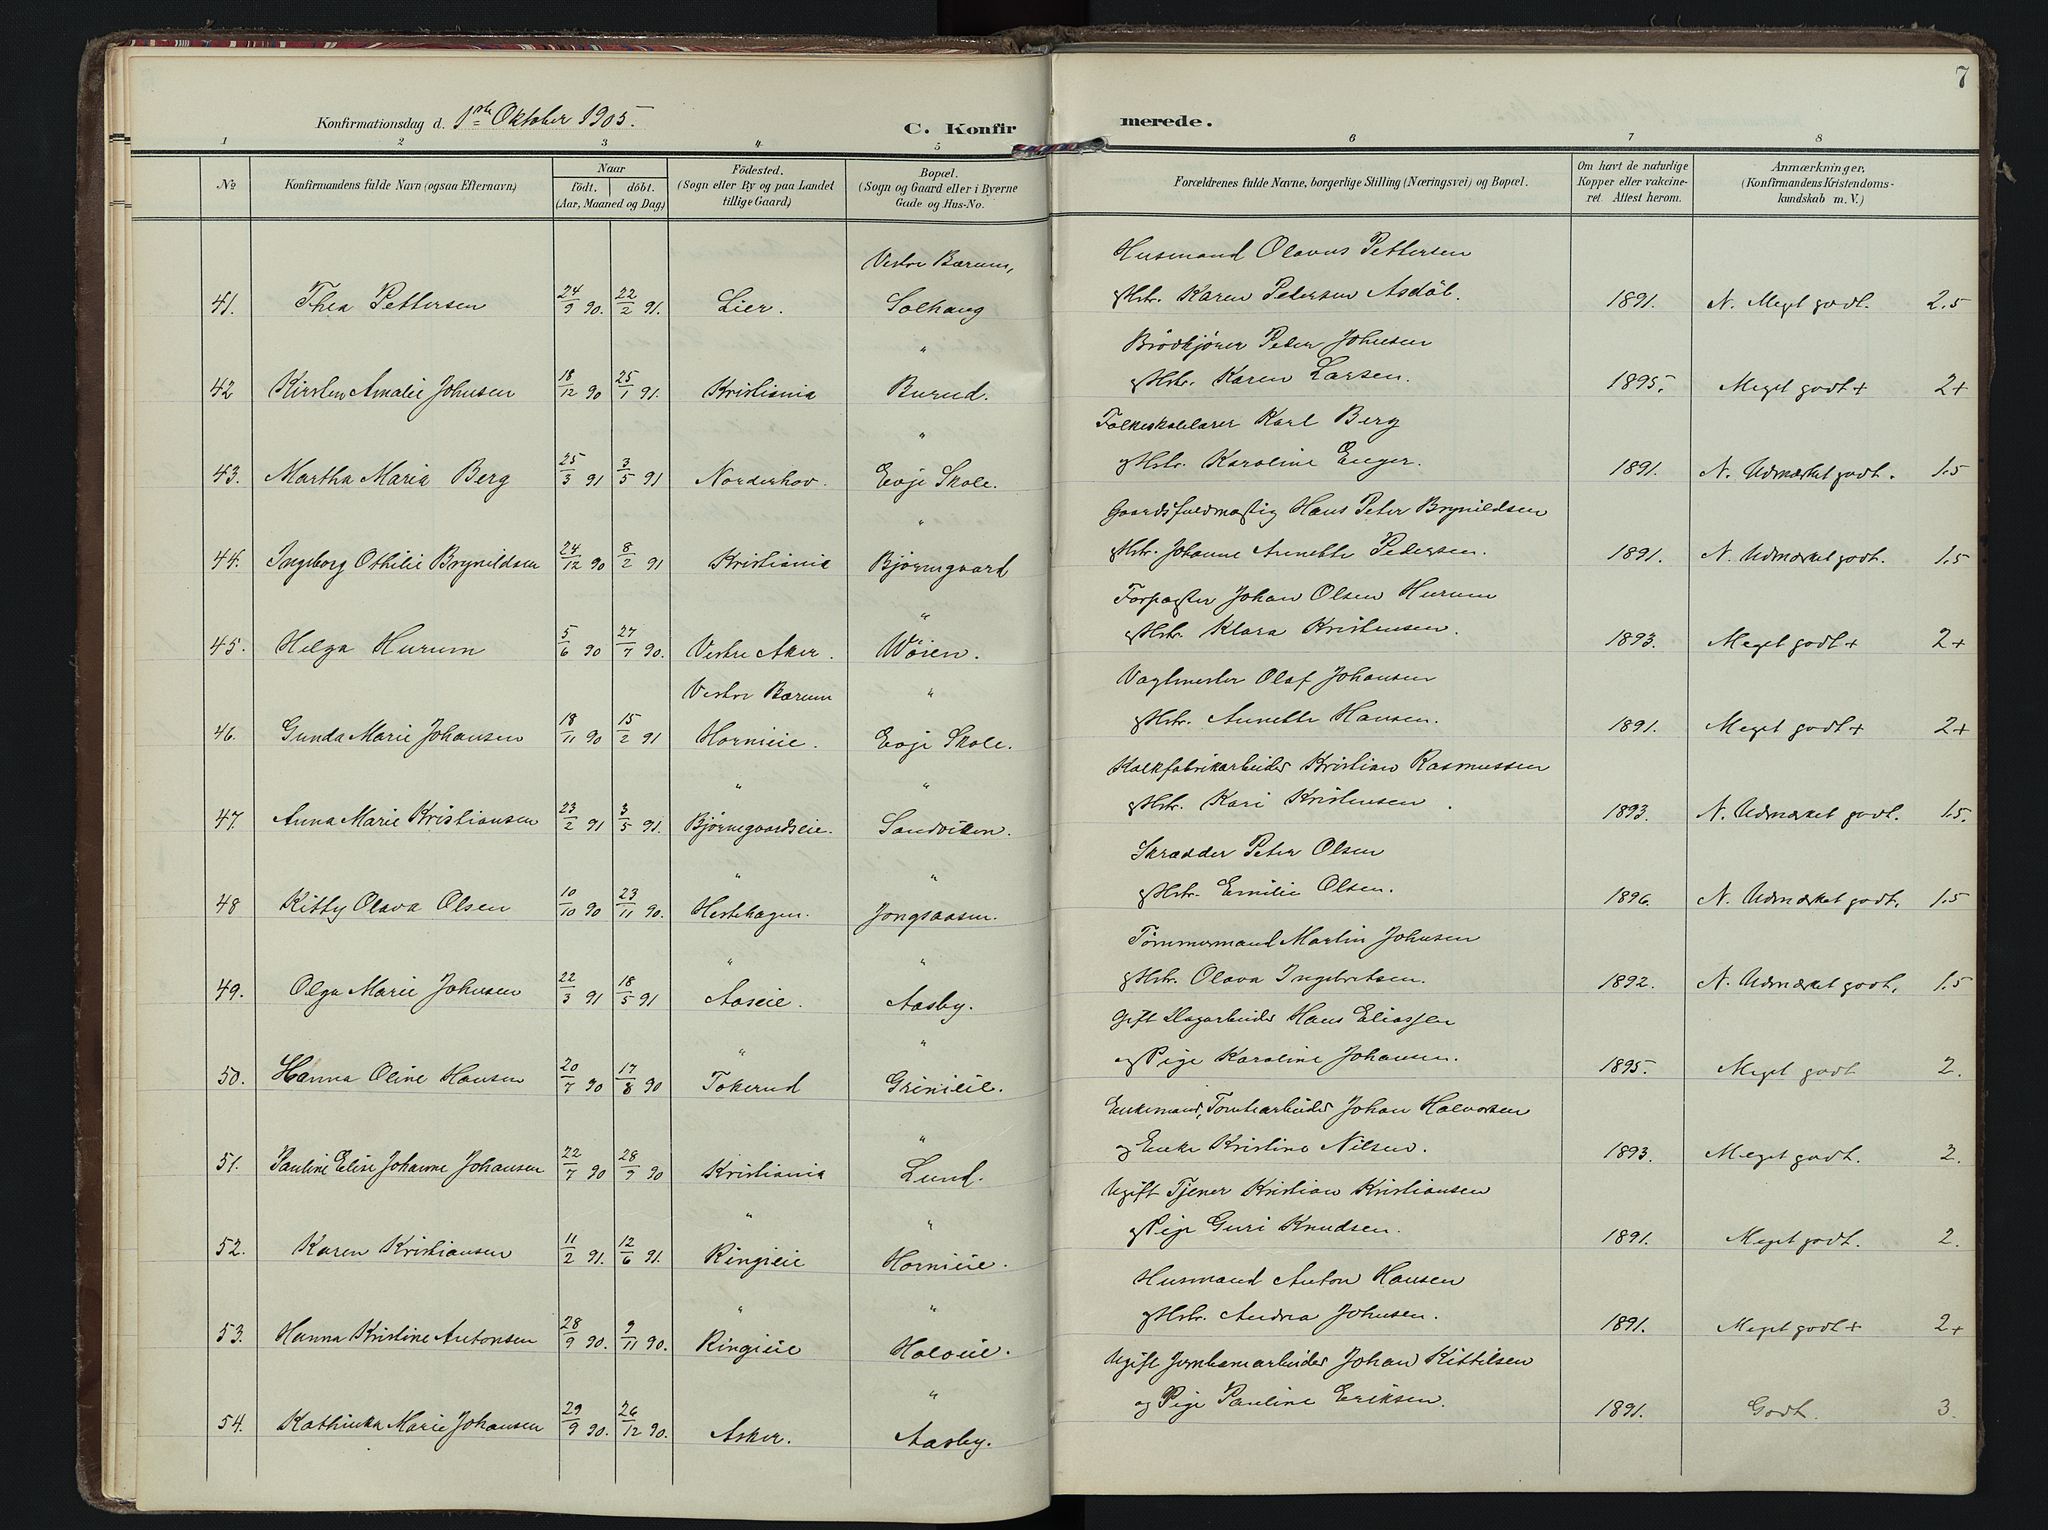 7
Konfirmationsdag d. 1ste Oktober 1905.
C. Konfirmerede.
1 2 3 4 5 6 7 8
No Konfirmandens fulde Navn (ogsaa Efternavn) Naar födt. döbt. (Aar, Maaned og Dag) Födested. (Sogn eller By og paa Landet tillige Gaard) Bopæl. (Sogn og Gaard eller i Byerne Gade og Hus-No. Forældrenes fulde Navne, borgerlige Stilling (Næringsvei) og Bopæl. Om havt de naturlige Kopper eller vakcineret. Attest herom. Anmærkninger, (Konfirmandens Kristendomskundskab m. V.)
Vestre Bærum, Husmand Olavus Pettersen
41. Thea Pettersen 24/9 90. 22/2 91. Lier. Solhaug & Hstr. Karen Petersen Asdöl. 1891. N. Meget godt. 2.5
" Brödkjörer Peter Johnsen
42 Kirsten Amalie Johnsen 18/12 90 25/1 91. Kristiania Burud. & Hstr. Karen Larsen. 1895. Meget godt + 2+
" Folkeskolelærer Karl Berg
43. Martha Maria Berg 25/3 91 3/5 91 Norderhov. Evje Skole. & Hstr. Karoline Enger. 1891. N. Udmærket godt. 1.5
" Gaardsfuldmægtig Hans Peter Brynildsen
44. Ingeborg Othilie Brynildsen 24/12 90 8/2 91 Kristiania Bjørnegaard & Hstr. Johanne Annette Pedersen. 1891. N. Udmærket godt. 1.5
" Forpagter Johan Olsen Hurum
45. Helga Hurum 5/6 90 27/7 90. Vestre Aker. Wöien. & Hstr. Klara Kristensen. 1893. Meget godt + 2+
Vestre Bærum " Vagtmester Olaf Johansen
46. Gunda Marie Johansen 18/11 90 15/2 91 Hornieie. Evje Skole. & Hstr. Annette Hansen. 1891. Meget godt + 2+
" " Kalkfabrikarbeider Kristian Rasmussen
47. Anna Marie Kristiansen 23/2 91 3/5 91. Bjørnegaardseie. Sandviken. & Hstr. Kari Kristensen. 1893. N. Udmærket godt. 1.5.
" " Skrædder Peter Olsen
48 Kitty Olava Olsen 10/10 90 23/11 90. Hestehagen. Jongsaasen. & Hstr. Emilie Olsen. 1896. N. Udmærket godt. 1.5
" " Tømmermand Martin Johnsen
49. Olga Marie Johnsen 22/3 91 18/5 91 Aaseie. Aasby. & Hstr. Olava Ingebretsen. 1892. N. Udmærket godt. 1.5
" " Gift Dagarbeider Hans Eliassen
50. Hanna Oline Hansen 20/7 90 17/8 90 Tokerud Grinieie. og Pige Karoline Johansen. 1895. Meget godt 2.
" Enkemand, Tomtearbeider Johan Halvorsen
51. Pauline Elise Johanne Johansen 22/7 90 28/9 90 Kristiania Lund. og Enke Kristine Nilsen. 1893. Meget godt. 2.
" " Ugift Tjener Kristian Kristiansen
52. Karen Kristiansen 11/2 91. 12/6 91. Ringieie Hornieie. & Pige Guri Knudsen. 1891. Meget godt. 2.
" " Husmand Anton Hansen
53. Hanna Kristine Antonsen 28/9 90. 9/11 90. Ringieie Haloeie. & Hstr. Andrea Johnsen. 1891. Meget godt + 2+
" Ugift Jernbanearbeider Johan Kittilsen
54. Kathinka Marie Johansen 29/9 90. 26/12 90. Asker. Aasby. og Pige Pauline Eriksen. 1891. Godt. 3.